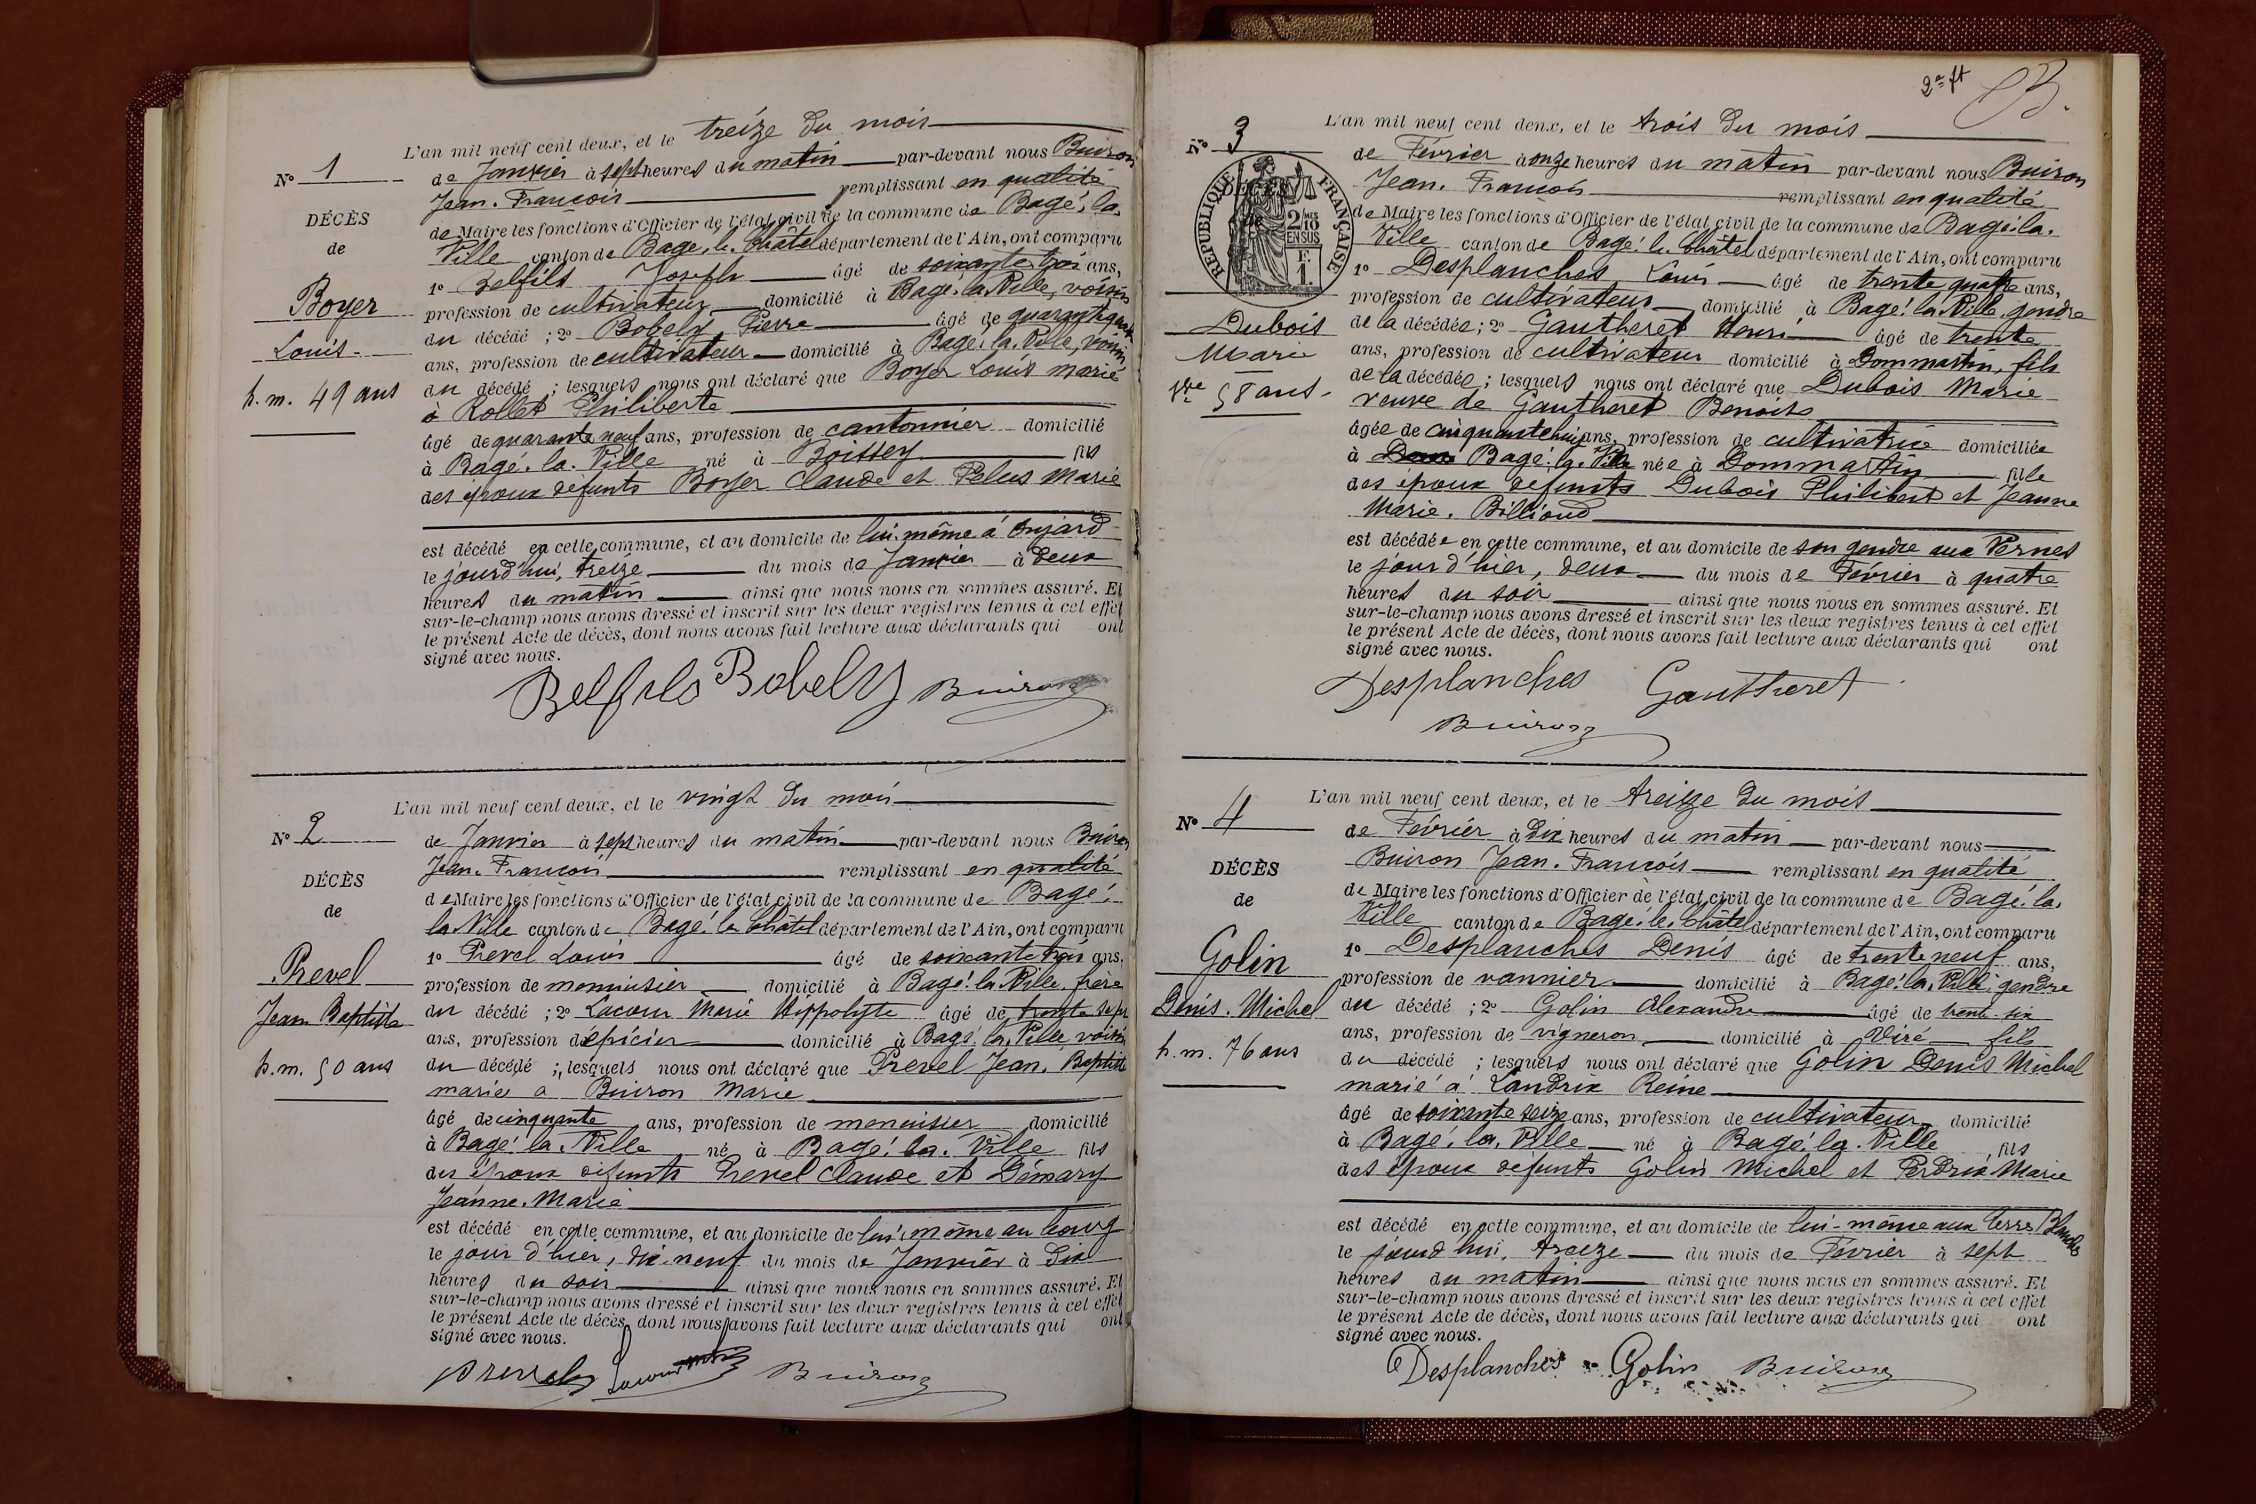 L'an mil neuf cent deux, et le treize du mois
No 1
de Janvier à sept heures du matin par-devant nous Buiron
Jean. François remplissant en qualité
DÉCÈS
de Maire les fonctions d'Officier de l'état civil de la commune de Bagé. la.
de
Ville canton de Bagé. le. Châtel département de l'Ain, ont comparu
1o Belfils Joseph âgé de soixante trois ans,
Boyer
profession de cultivateur domicilié à Bagé. la Ville, voisin
du décédé ; 2o Bobely Pierre âgé de quarante quatre
Louis.
ans, profession de cultivateur domicilié à Bagé. la. Ville, voisin
du décédé ; lesquels nous ont déclaré que Boyer Louis marié
h. m. 49 ans
à Rollet Philiberte
âgé de quarante neuf ans, profession de cantonnier domicilié
à Bagé. la. Ville né à Boissey fils
des époux défunts Boyer Claude et Pelus Marie
est décédé en cette commune, et au domicile de lui. même à
le jourd'hui, treize du mois de Janvier à deux
heures du matin ainsi que nous nous en sommes assuré. Et
sur-le-champ nous avons dressé et inscrit sur les deux registres tenus à cet effet
le présent Acte de décès, dont nous avons fait lecture aux déclarants qui ont
signé avec nous.
Belfils Bobely Buiron
L'an mil neuf cent deux, et le vingt du mois
No 2
de Janvier à sept heures du matin par-devant nous Buiron
Jean. François remplissant en qualité
DÉCÈS
de Maire les fonctions d'Officier de l'état civil de la commune de Bagé.
de
la Ville canton de Bagé. le Châtel département de l'Ain, ont comparu
1o Prevel Louis âgé de soixante trois ans,
Prevel
profession de menuisier domicilié à Bagé. la Ville, frère
Jean Baptiste
du décédé ; 2o Lacour Marie Hippolyte âgé de trente sept
ans, profession d'épicier domicilié à Bagé. la. Ville voisin
h. m. 50 ans
du décédé ; lesquels nous ont déclaré que Prevel Jean. Baptiste
marié a Buiron Marie
âgé de cinquante ans, profession de menuisier domicilié
à Bagé. la. Ville né à Bagé. la. Ville fils
des époux défunts Prevel Claude et Démary
Jeanne. Marie
est décédé en cette commune, et au domicile de lui. même au bourg
le jour d'hier, dix. neuf du mois de Janvier à dix
heures du soir ainsi que nous nous en sommes assuré. Et
sur-le-champ nous avons dressé et inscrit sur les deux registres tenus à cet effet
le présent Acte de décès, dont nous avons fait lecture aux déclarants qui ont
signé avec nous.
Prevel Lacour Buiron
2e ft
L'an mil neuf cent deux, et le trois du mois
No 3
de Février à onze heures du matin par-devant nous Buiron
Jean. François remplissant en qualité
RÉPUBLIQUE FRANÇAISE
2/10 EN SUS
F. 1.
de Maire les fonctions d'Officier de l'état civil de la commune de Bagé. la.
Ville canton de Bagé. le. Châtel département de l'Ain, ont comparu
1o Desplanches Louis âgé de trente quatre ans,
profession de cultivateur domicilié à Bagé. la Ville, gendre
Dubois
de la décédée ; 2o Gautheret Henri âgé de trente
Marie
ans, profession de cultivateur domicilié à Dommartin, fils
de la décédée ; lesquels nous ont déclaré que Dubois Marie
Vve 58 ans.
veuve de Gautheret Benoît
âgée de cinquante huit ans, profession de cultivatrice domiciliée
à Bagé. la. Ville née à Dommartin fille
des époux défunts Dubois Philibert et Jeanne
Marie. Billioud
est décédée en cette commune, et au domicile de son gendre aux Vernes
le jour d'hier, deux du mois de Février à quatre
heures du soir ainsi que nous nous en sommes assuré. Et
sur-le-champ nous avons dressé et inscrit sur les deux registres tenus à cet effet
le présent Acte de décès, dont nous avons fait lecture aux déclarants qui ont
signé avec nous.
Desplanches Gautheret
Buiron
L'an mil neuf cent deux, et le treize du mois
No 4
de Février à dix heures du matin par-devant nous
Buiron Jean. François remplissant en qualité
DÉCÈS
de Maire les fonctions d'Officier de l'état civil de la commune de Bagé. la.
de
Ville canton de Bagé. le. Châtel département de l'Ain, ont comparu
1o Desplanches Denis âgé de trente neuf ans,
Golin
profession de vannier domicilié à Bagé. la. Ville gendre
Denis. Michel
du décédé ; 2o Golin Alexandre âgé de trente. six
ans, profession de vigneron domicilié à Viré fils
h. m. 76 ans
du décédé ; lesquels nous ont déclaré que Golin Denis Michel
marié à Landrix Reine
âgé de soixante seize ans, profession de cultivateur domicilié
à Bagé. la. Ville né à Bagé. la. Ville fils
des époux défunts Golin Michel et Perdrix Marie
est décédé en cette commune, et au domicile de lui-même aux Terres Blanches
le jourd'hui, treize du mois de Février à sept
heures du matin ainsi que nous nous en sommes assuré. Et
sur-le-champ nous avons dressé et inscrit sur les deux registres tenus à cet effet
le présent Acte de décès, dont nous avons fait lecture aux déclarants qui ont
signé avec nous.
Desplanches Golin Buiron